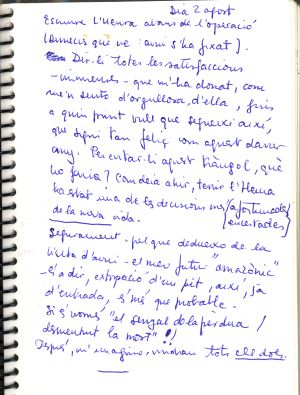 Dia 2 agost
Escriure l'Hema abans de l'operació
(dimecres que ve: així s'ha fixat).
Dir-li totes les satisfaccions
-immenses- que m'ha donat, com
me'n sento d'orgullosa, d'ella, fins
a quin punt vull que segueixi així,
que sigui tan feliç com aquest darrer
any. Per evitar-li aquest tràngol, què
no faria? Com deia ahir, tenir l'Hema
ha estat una de les decisions més (afortunades
de la meva vida. encertades)
Segurament - pel que dedueixo de la
visita d'avui - el meu futur "amazònic"
-s'a dir, extirpació d'un pit, així, ja
d'entrada, és més que probable.
Si és només "el senyal de la pèrdua /
desmentint la mort"!!
Després, m'imagino, vindran tots els dols.